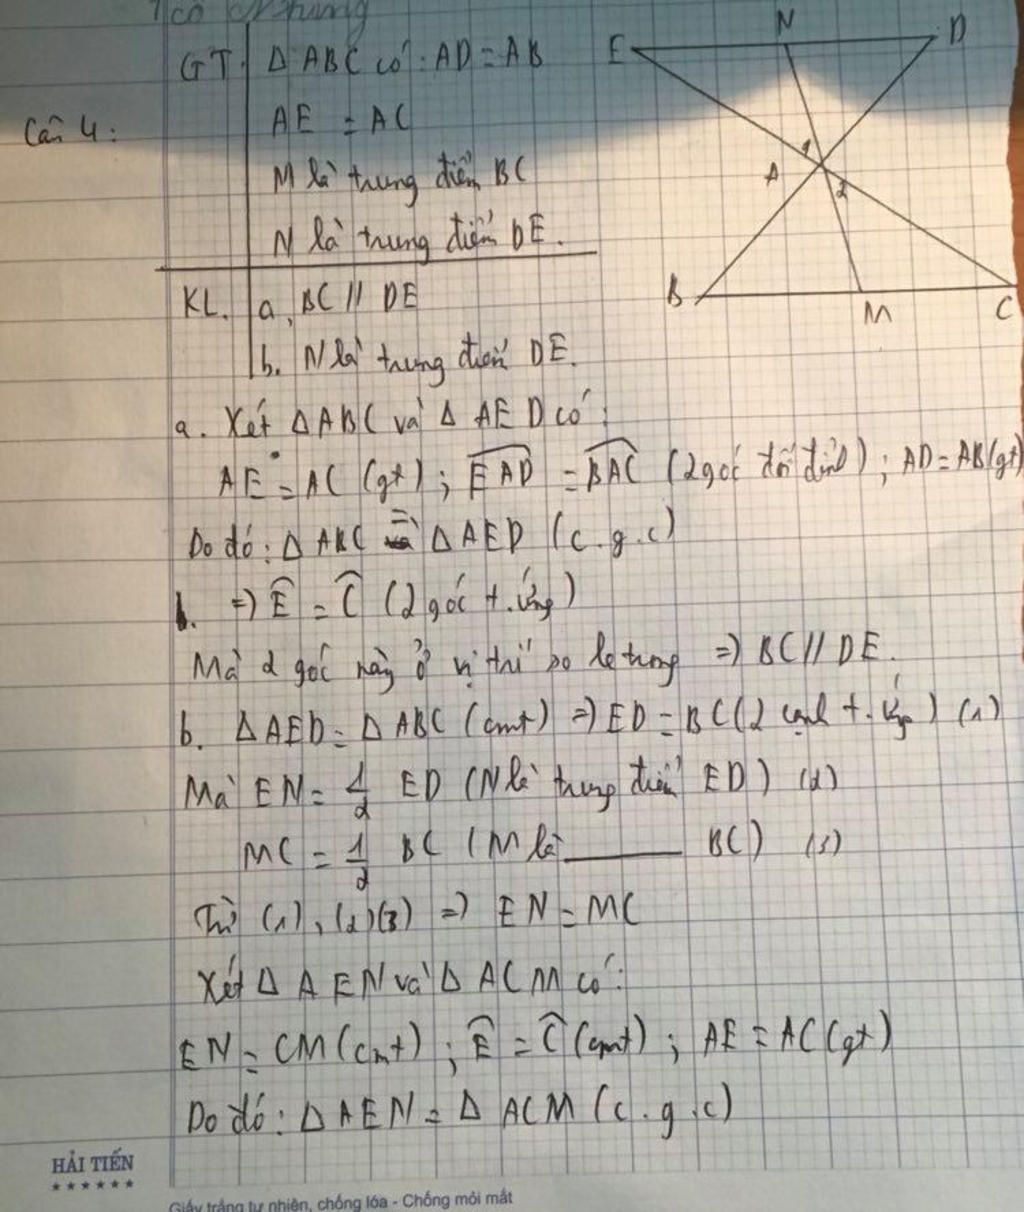 cô Nhung
GT. Δ ABC có: AD = AB
Câu 4:
AE = AC
M là trung điểm BC
N là trung điểm DE.
KL. a, BC // DE
b. N là trung điểm DE.
E N D
A 1
2
B M C
a. Xét Δ ABC và Δ AED có:
AE = AC (gt); EAD = BAC (2 góc đối đỉnh); AD = AB (gt)
Do đó: Δ ABC = Δ AED (c.g.c)
b. => Ê = Ĉ (2 góc t. ứng)
Mà 2 góc này ở vị trí so le trong => BC // DE.
b. Δ AED = Δ ABC (cmt) => ED = BC (2 cạnh t. ứng) (1)
Mà EN = 1/2 ED (N là trung điểm ED) (2)
MC = 1/2 BC (M là ______ BC) (3)
Từ (1), (2) (3) => EN = MC
Xét Δ AEN và Δ ACM có:
EN = CM (cmt); Ê = Ĉ (cmt); AE = AC (gt)
Do đó: Δ AEN = Δ ACM (c.g.c)
HẢI TIẾN
★★★★★★
Giấy trắng tự nhiên, chống lóa - Chống mỏi mắt